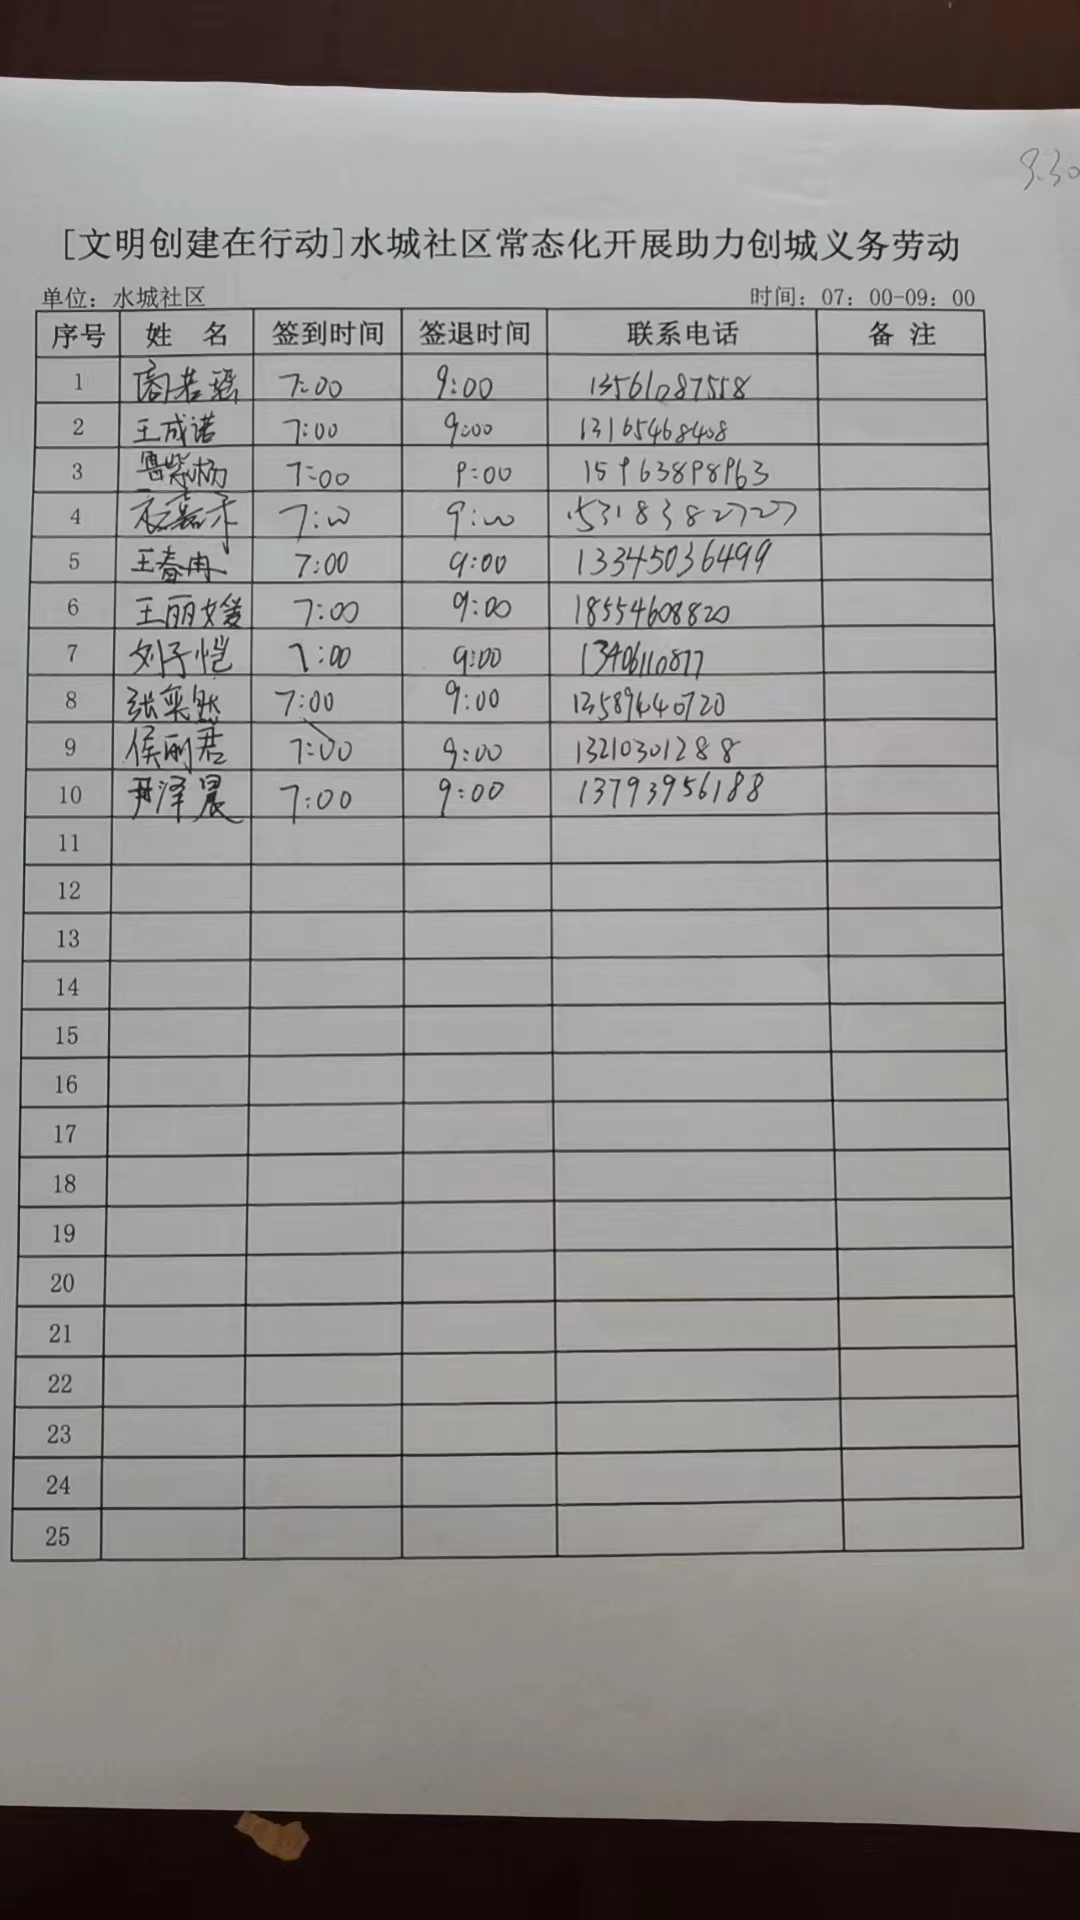 9.30
[文明创建在行动]水城社区常态化开展助力创城义务劳动
单位：水城社区 时间：07：00-09：00
序号 姓 名 签到时间 签退时间 联系电话 备 注
1 7:00 9:00 13561087558
2 王成诺 7:00 9:00 13165468408
3 7:00 9:00 15963898963
4 7:00 9:00 15318382727
5 王春冉 7:00 9:00 13345036499
6 王丽媛 7:00 9:00 18554608820
7 刘子恺 7:00 9:00 13406110877
8 张奕然 7:00 9:00 13589440720
9 侯丽君 7:00 9:00 13210301288
10 尹泽晨 7:00 9:00 13793956188
11
12
13
14
15
16
17
18
19
20
21
22
23
24
25